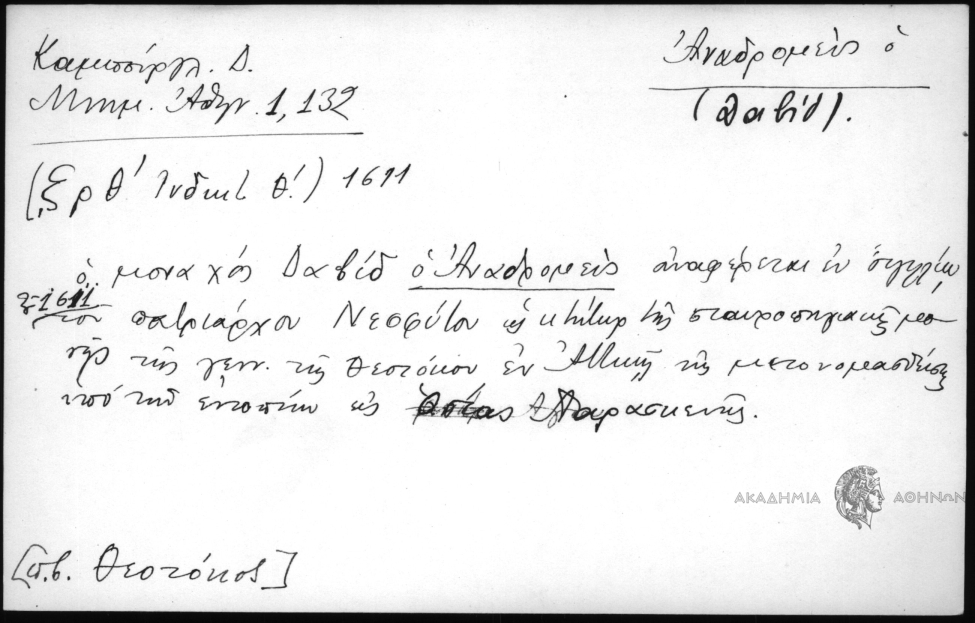 Καμπούργλ. Δ.
Μνημ. Ἀθην. 1, 132
Ἀναδρομεὺς ὁ
(Δαβίδ).
(͵ζρθ' Ἰνδικτ θ'.) 1611
ὁ μοναχός Δαβίδ ὁ Ἀναδρομεὺς ἀναφέρεται ἐν σιγιλλίῳ
1611
του πατριάρχου Νεοφύτου ὡς κτήτωρ τῆς σταυροπηγιακῆς μο-
νῆς τῆς γενν. τῆς Θεοτόκου ἐν Ἀττικῇ τῆς μετονομασθείσης
ὑπό τῶν ἐντοπίων εἰς Ἁγ Παρασκευῆς.
ΑΚΑΔΗΜΙΑ ΑΘΗΝΩΝ
[π.β. Θεοτόκος]